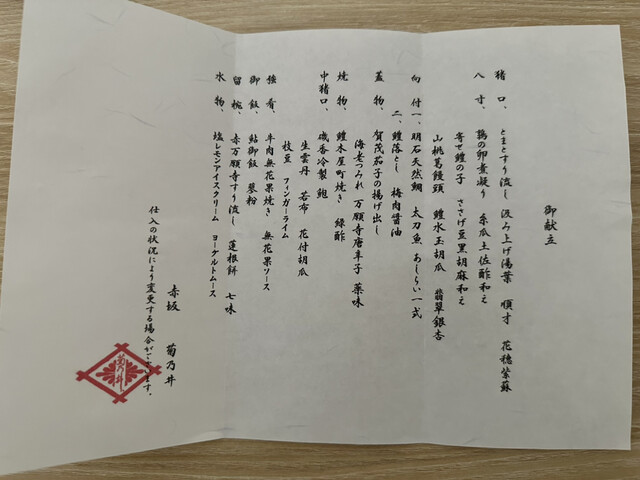 御献立
猪口、 とまとすり流し 汲み上げ湯葉 順才 花穂紫蘇
八寸、 鶉の卵煮凝り 糸瓜土佐酢和え
寄せ鱧の子 ささげ豆黒胡麻和え
山桃葛饅頭 鱧水玉胡瓜 翡翠銀杏
向付 一、明石天然鯛 太刀魚 あしらい一式
二、鱧落とし 梅肉醤油
蓋物、 賀茂茄子の揚げ出し
海老つみれ 万願寺唐辛子 薬味
焼物、 鱧木屋町焼き 緑酢
中猪口、 磯香冷製 鮑
生雲丹 若布 花付胡瓜
枝豆 フィンガーライム
強肴、 牛肉無花果焼き 無花果ソース
御飯、 鮎御飯 蓼粉
留椀、 赤万願寺すり流し 蓮根餅 七味
水物、 塩レモンアイスクリーム ヨーグルトムース
赤坂 菊乃井
仕入の状況により変更する場合がございます。
菊乃井